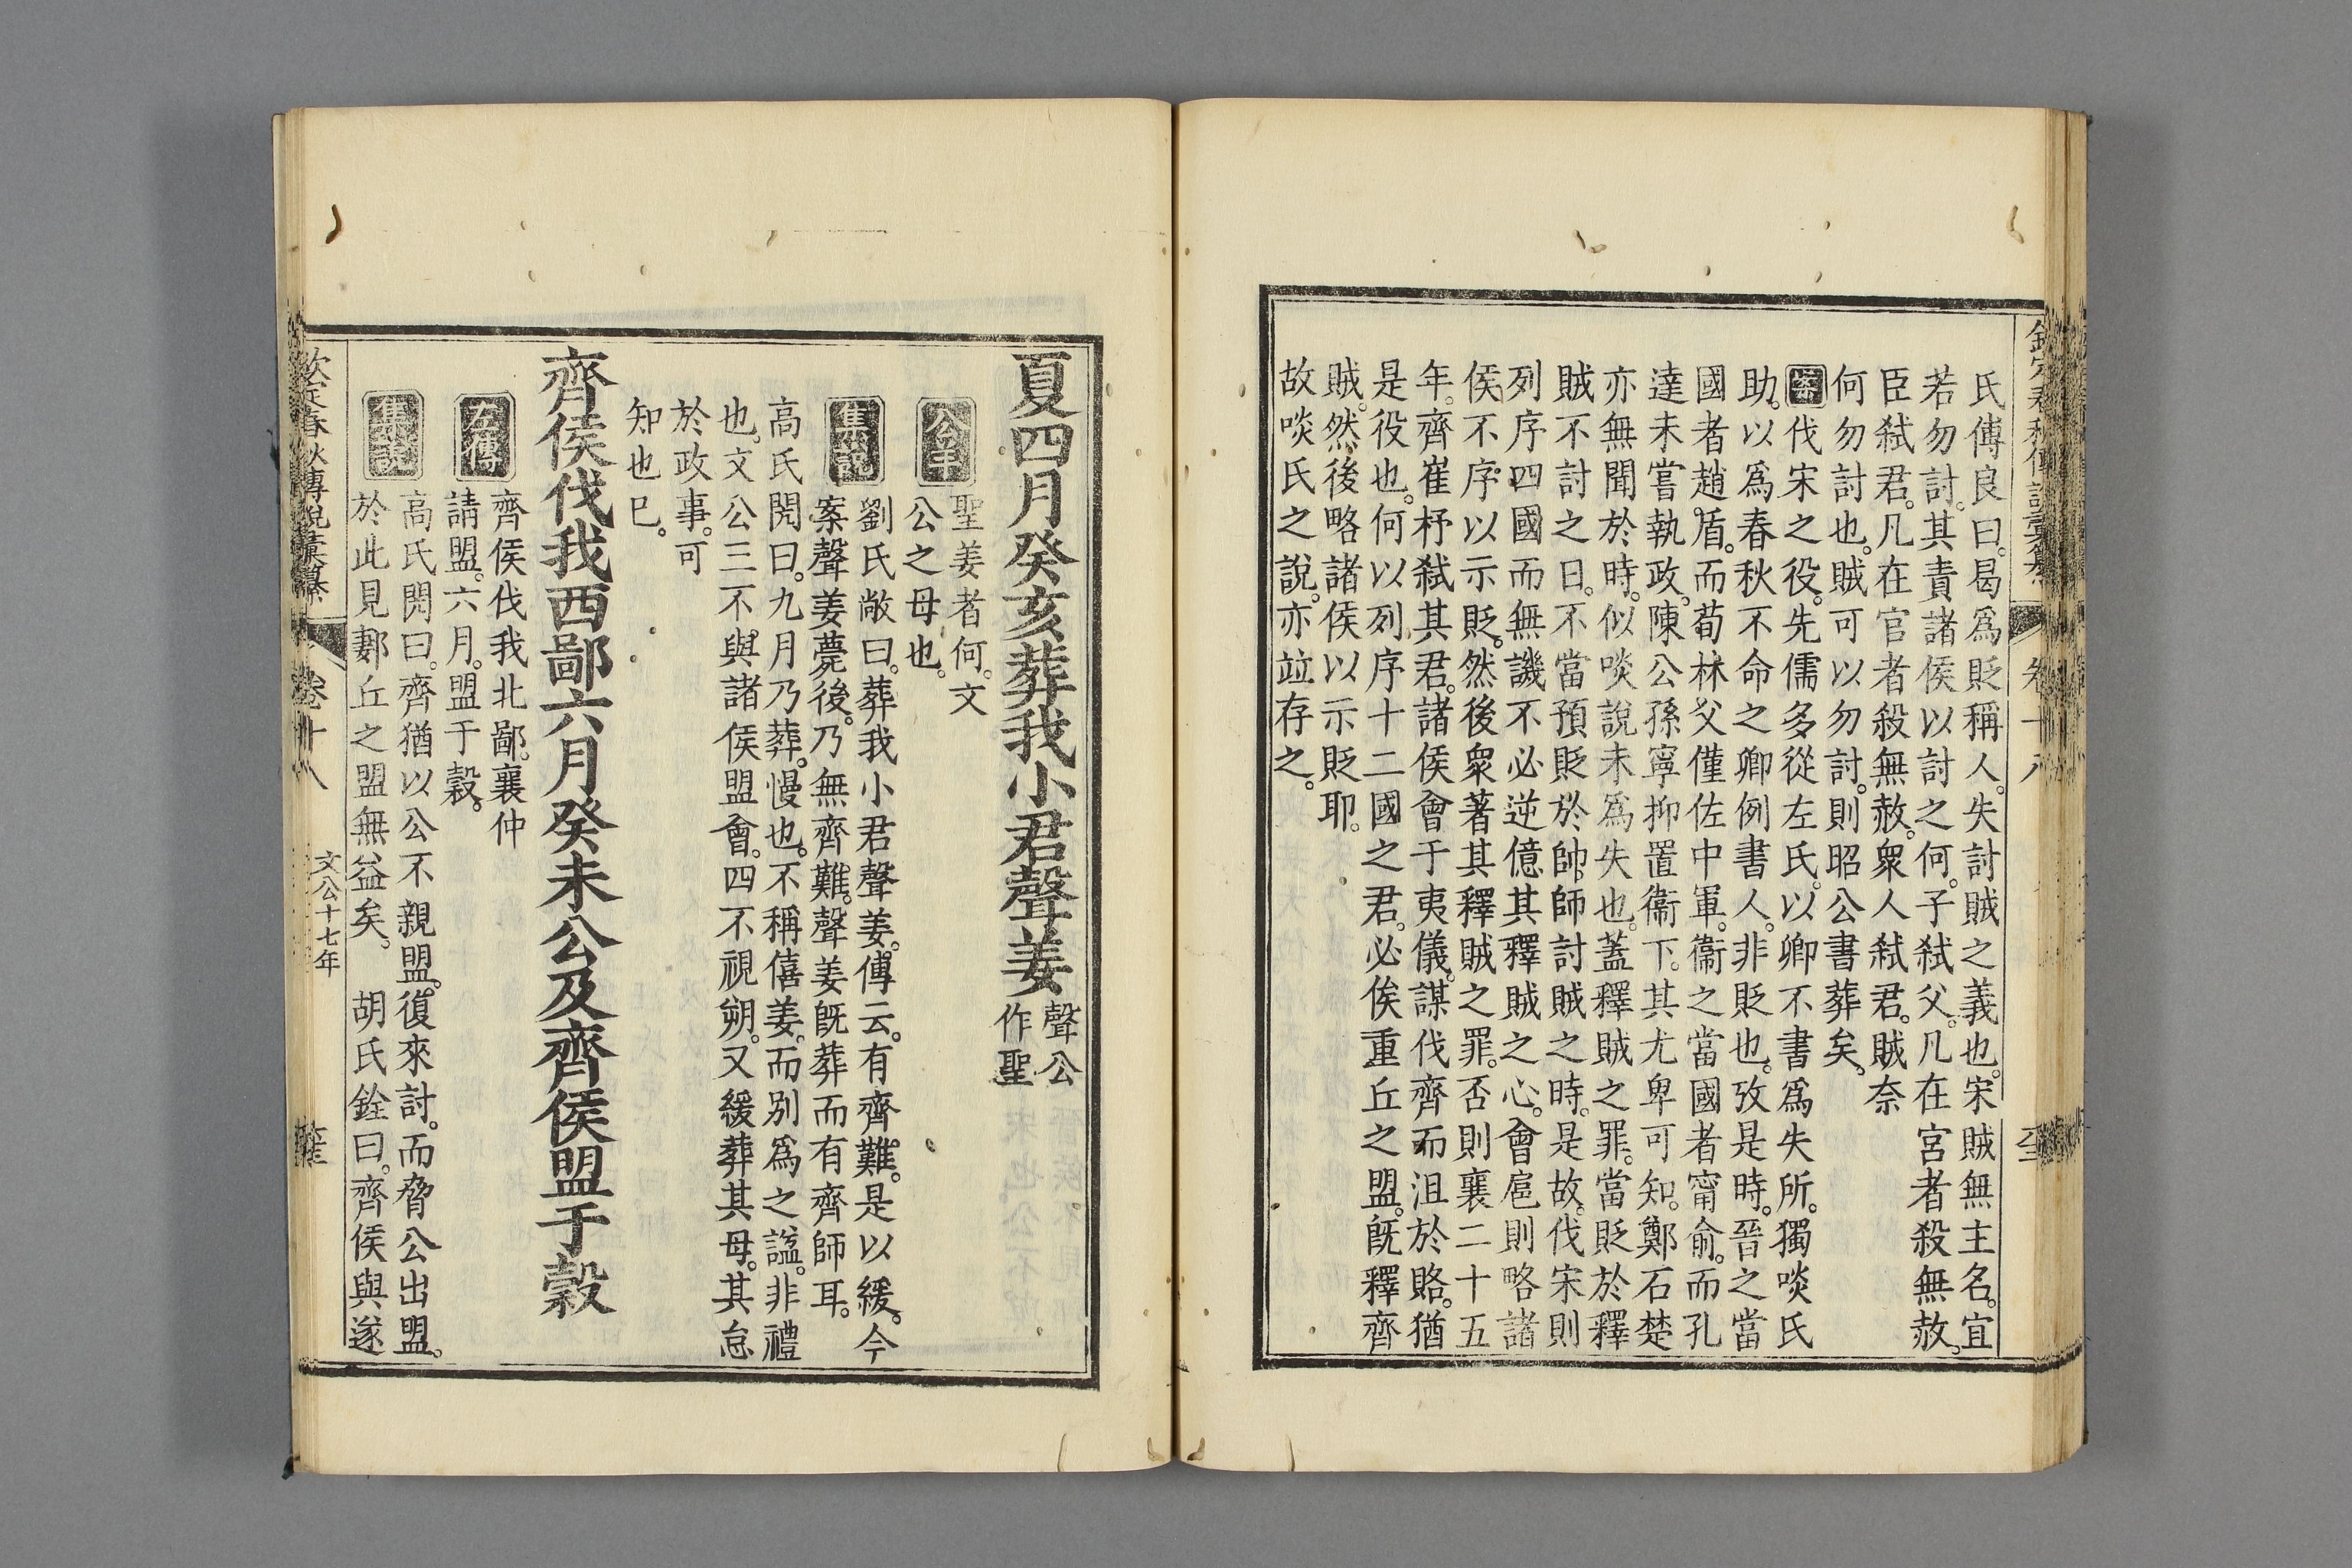 氏傳良曰。曷爲貶稱人。失討賊之義也。宋賊無主名。宜
若勿討。其責諸侯以討之何。子弑父。凡在宮者殺無赦。
臣弑君。凡在官者殺無赦。衆人弑君。賊奈
何勿討也。賊可以勿討。則昭公書葬矣。
案伐宋之役。先儒多從左氏。以卿不書爲失所。獨啖氏
助。以爲春秋不命之卿例書人。非貶也。攷是時。晉之當
國者趙盾。而荀林父僅佐中軍。衞之當國者甯俞。而孔
達未嘗執政。陳公孫寧抑置衞下。其尤卑可知。鄭石楚
亦無聞於時。似啖說未爲失也。蓋釋賊之罪。當貶於釋
賊不討之日。不當預貶於帥師討賊之時。是故。伐宋則
列序四國而無譏不必逆億其釋賊之心。會扈則略諸
侯不序以示貶。然後衆著其釋賊之罪。否則襄二十五
年。齊崔杼弑其君。諸侯會于夷儀。謀伐齊而沮於賂。猶
是役也。何以列序十二國之君。必俟重丘之盟。旣釋齊
賊。然後略諸侯以示貶耶。
故啖氏之說。亦竝存之。
卷十八
夏四月癸亥葬我小君聲姜 聲公作聖
公羊 聖姜者何。文
公之母也。
集說 劉氏敞曰。葬我小君聲姜。傳云。有齊難。是以緩。今
案聲姜薨後。乃無齊難。聲姜旣葬而有齊師耳。
高氏閌曰。九月乃葬。慢也。不稱僖姜。而別爲之諡。非禮
也。文公三不與諸侯盟會。四不視朔。又緩葬其母。其怠
於政事。可
知也已。
齊侯伐我西鄙六月癸未公及齊侯盟于穀
左傳 齊侯伐我北鄙。襄仲
請盟。六月。盟于穀。
集說 高氏閌曰。齊猶以公不親盟。復來討。而脅公出盟。
於此見郪丘之盟無益矣。 胡氏銓曰。齊侯與遂
欽定春秋傳說彙纂 卷十八 文公十七年